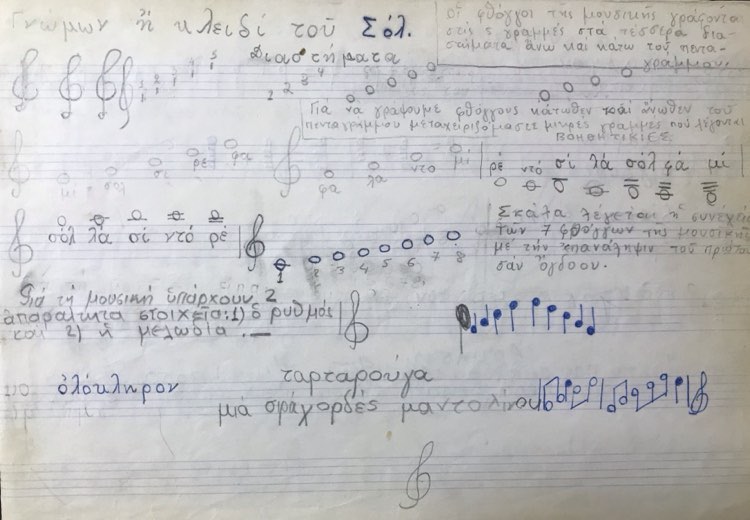 Γνώμων ἢ κλειδί τοῦ Σόλ.
Οἱ φθόγγοι τῆς μουσικῆς γράφονται
στις 5 γραμμές στα τέσσερα δια-
στήματα ἄνω και κάτω τοῦ πεντα-
γράμμου.
Διαστήματα
1 2 3 4 5
1 2 3 4
Γιὰ νὰ γράψουμε φθόγγους κάτωθεν καὶ ἄνωθεν τοῦ
πενταγράμμου μεταχειριζόμαστε μικρές γραμμές που λέγονται
ΒΟΗΘΗΤΙΚΙΕΣ
μι σολ σι ρε φα
φα λα ντο μι
ρέ ντό σί λά σόλ φά μί
σόλ λά σί ντό ρέ
1 2 3 4 5 6 7 8
Σκάλα λέγεται ἡ συνέχεια
τῶν 7 φθόγγων τῆς μουσικῆς
με τὴν ἐπανάληψιν τοῦ πρώτου
σάν ὄγδοον.
Γιά τή μουσική ὑπάρχουν 2
ἀπαραίτητα στοιχεῖα: 1) ὁ ρυθμός
και 2) ἡ μελωδία.—
ὁλόκληρον
ταρταρούγα
μιά